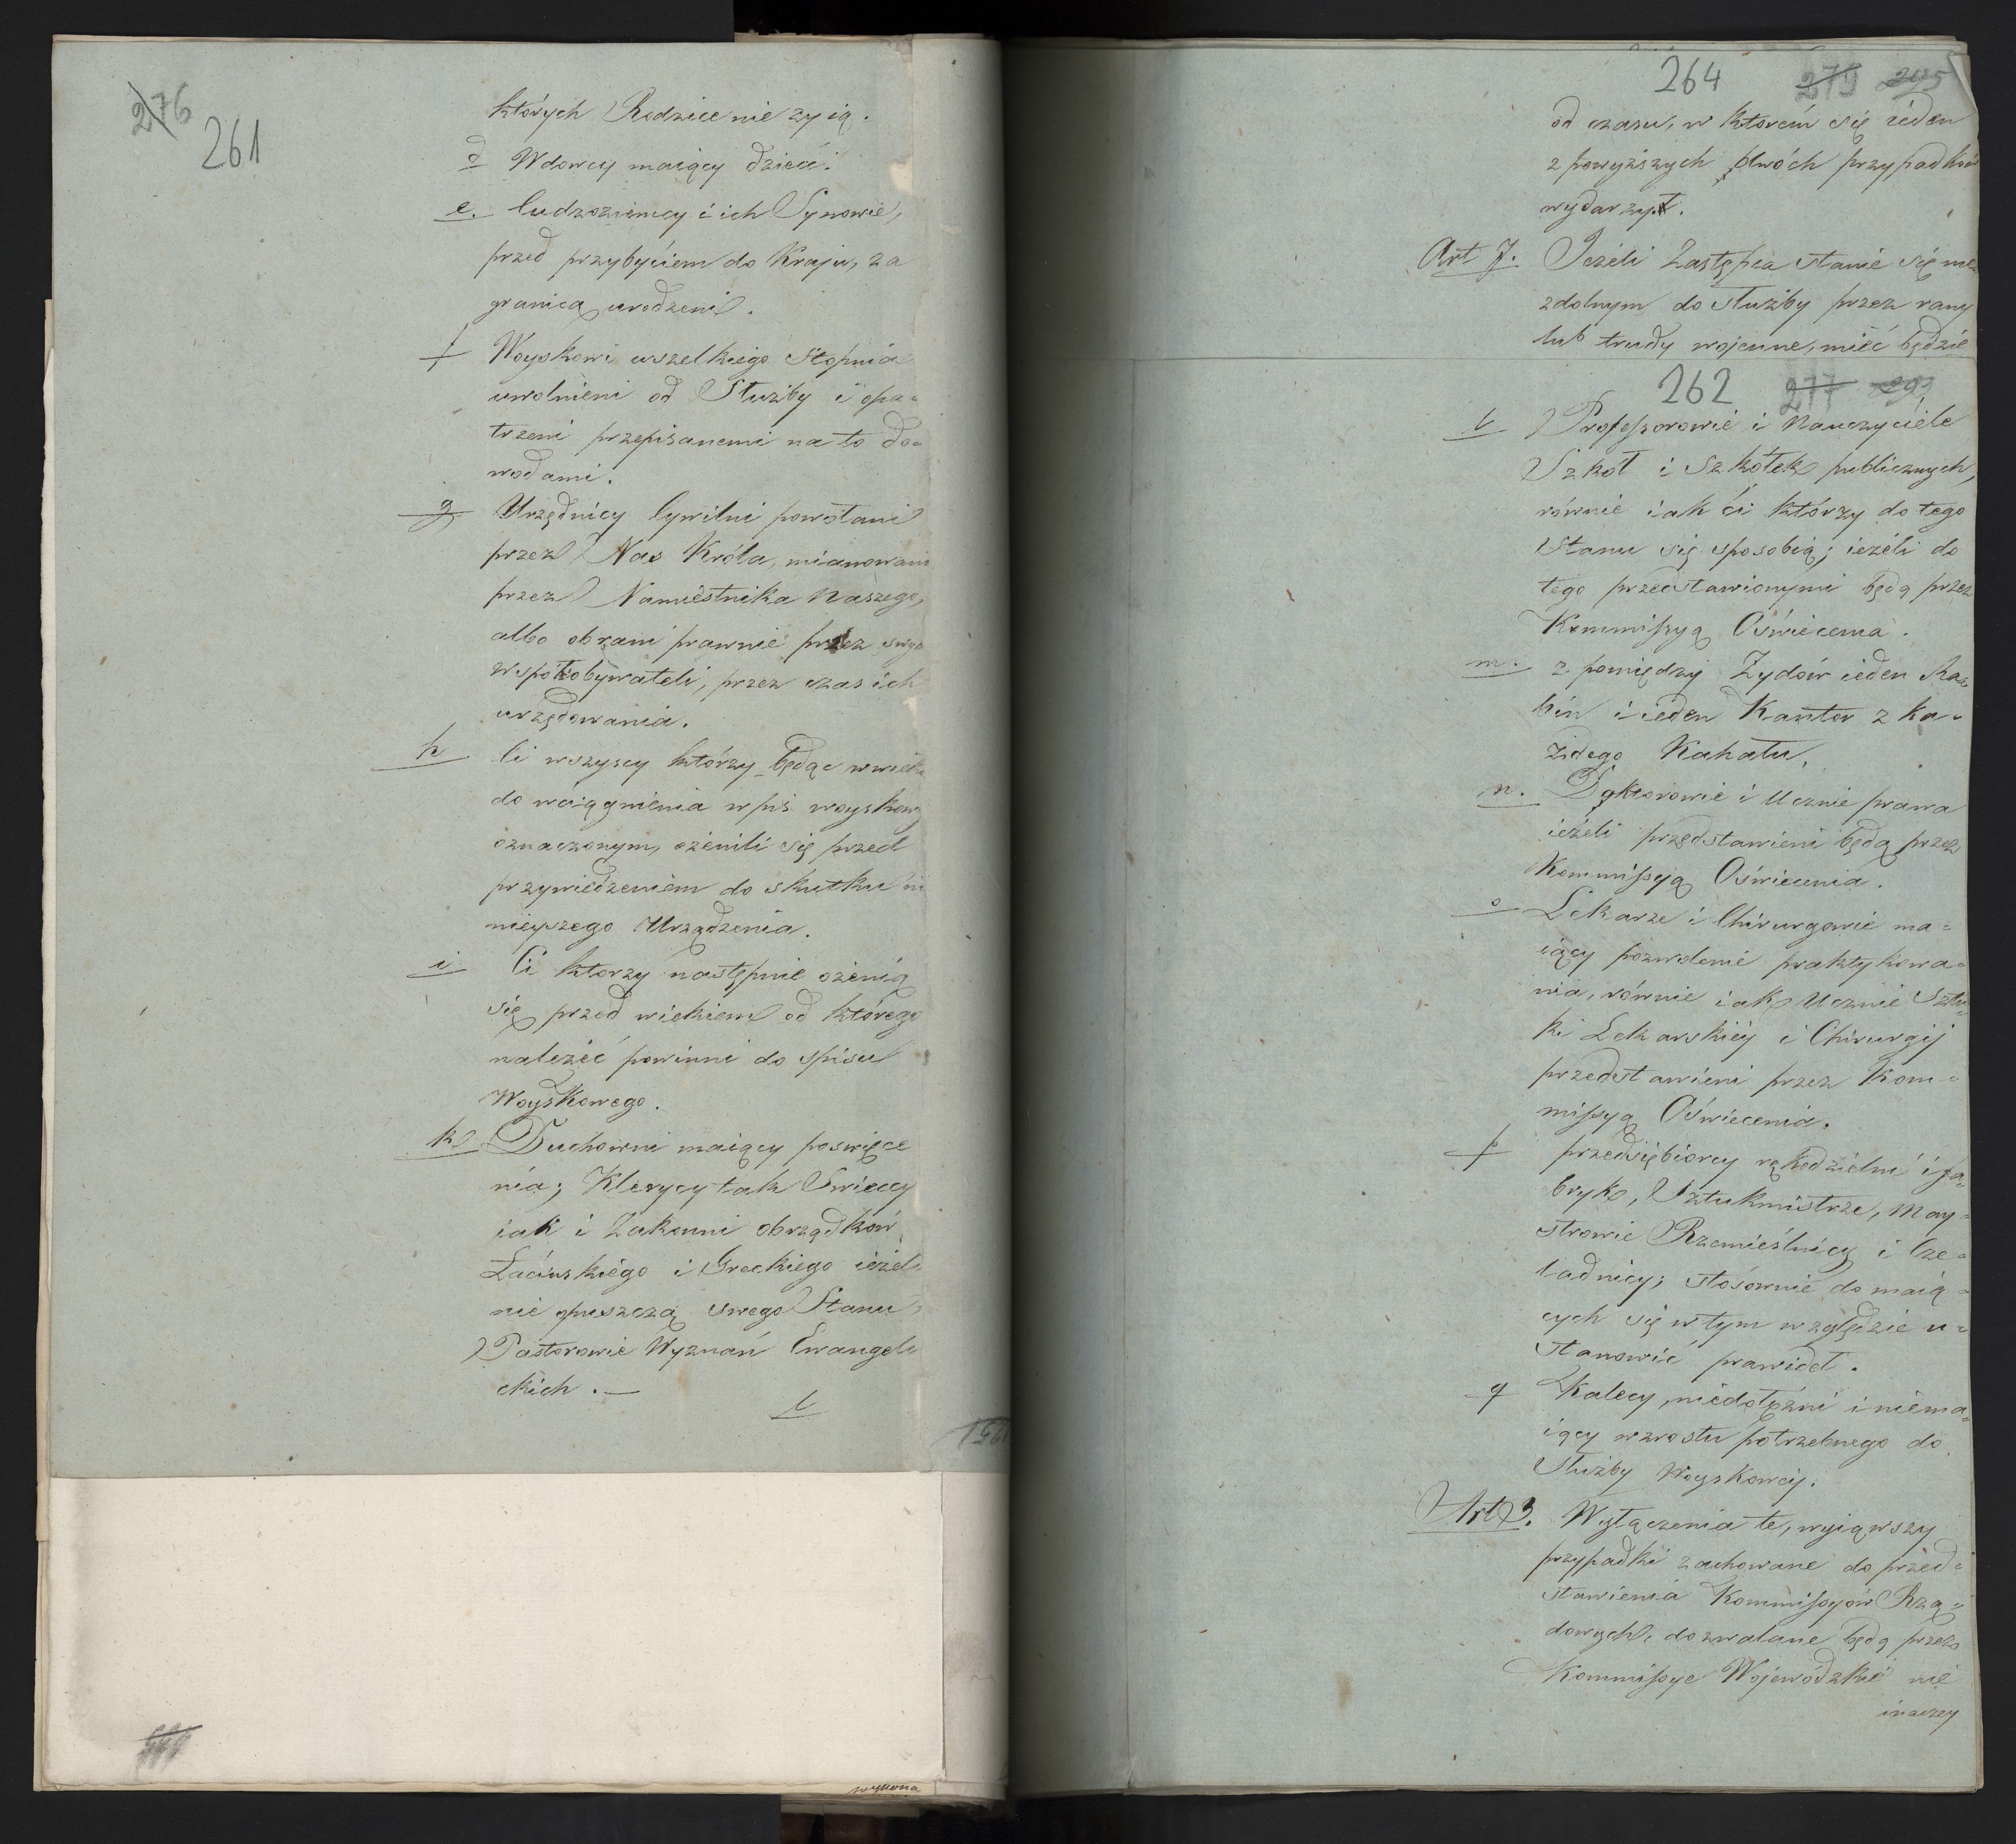 276
261
których Rodzice nie zyią.
d Wdowcy maiący dzieci.
e. Cudzoziemcy i ich Synowie,
przed przybyciem do Kraju, za
granicą urodzeni.
f Woyskowi wszelkiego Stopnia
uwolnieni od Służby i opa=
trzeni przepisanemi na to do=
wodami.
g Urzędnicy Cywilni powołani
przez Nas Króla, mianowani
przez Namiestnika Naszego,
albo obrani prawnie przez swych
wspołobywateli, przez czas ich
urzędowania.
h Ci wszyscy którzy będąc w wieku
do wciągnienia w pis woyskowy
oznaczonym, ożenili się przed
przywiedzeniem do skutku ni
nieyszego Urządzenia.
i Ci ktorzy następnie ożenią
się przed wiekiem od którego
należéć powinni do spisu
Woyskowego.
k Duchowni maiący poswięce
nia; Klerycy tak Swieccy
iak i Zakonni obrządków
Łacińskiego i Greckiego ieżeli
nie opuszczą swego Stanu,
Pastorowie Wyznań Ewangeli
ckich. —
l
wykona
264 279 295
od czasu, w ktorém się ieden
z powyższych dwóch przypadków
wydarzył.
Art 7. Jeżeli Zastępca stanie się nie
zdolnym do służby przez rany
lub trudy wojenne, miéć będzie
262 277 293
l Professorowie i Nauczyciele
Szkół i Szkółek publicznych,
równie iak ći którzy do tego
Stanu się sposobią; ieżeli do
tego przedstawionymi będą przez
Kommissyą Oświecenia.
m. z pomiędzy Zydów ieden Ra=
bin i ieden Kantor z ka=
żdego Kahału.
n. Doktorowie i Ucznie prawa
ieżeli przedstawieni będą przez
Kommissyą Oświecenia.
o Lekarze i Chirurgowie ma=
iący pozwolenie praktykowa=
nia, równie iak Ucznie Sztu=
ki Lekarskiéy i Chirurgij
przedstawieni przez Kom=
missyą Oświecenia.
p przedsiębiorcy rękodzielni i fa=
bryk, Sztukmistrze, May=
strowie Rzemieślnicy i Cze=
ladnicy; stósownie do maią=
cych się w tym względzie u=
stanowić prawideł.
q Kalecy, niedołężni i niema=
iący wzrostu potrzebnego do
Służby Woyskowéy.
Art 3. Wyłączenia te, wyiąwszy
przypadki zachowane do przed=
stawienia Kommissyów Rzą=
dowych, dozwalane będą przez
Kommissye Wojewódzkie nie
inaczey